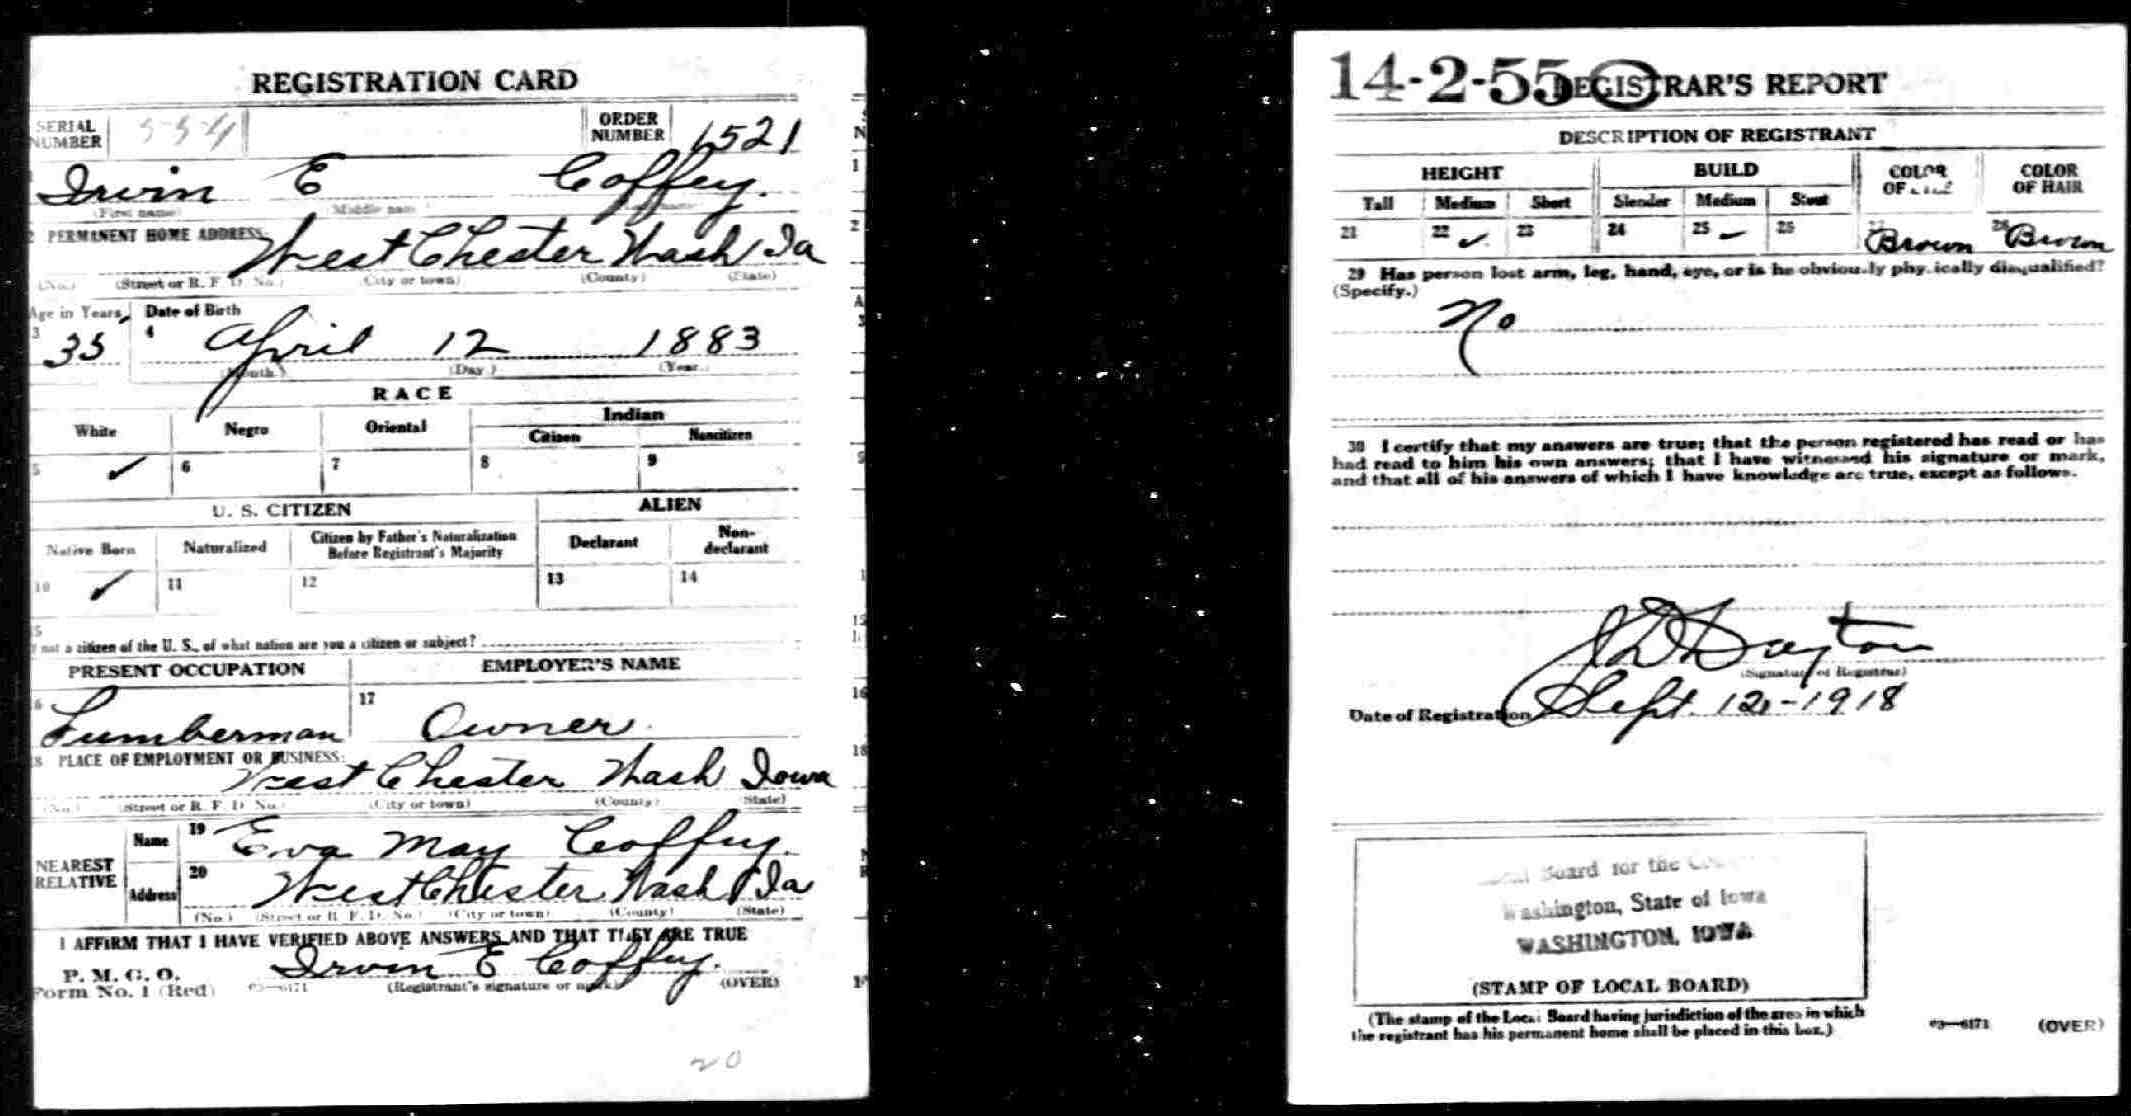 REGISTRATION CARD
SERIAL NUMBER 554 ORDER NUMBER 1521
1 Irvin E Coffey.
(First name) (Middle name) (Last name)
2 PERMANENT HOME ADDRESS:
West Chester Wash Ia
(No.) (Street or R. F. D. No.) (City or town) (County) (State)
Age in Years Date of Birth
3 35 4 April 12 1883
(Month.) (Day.) (Year.)
RACE
White Negro Oriental Indian
Citizen Noncitizen
5 ✓ 6 7 8 9
U. S. CITIZEN ALIEN
Native Born Naturalized Citizen by Father's Naturalization Before Registrant's Majority Declarant Non-declarant
10 ✓ 11 12 13 14
15
If not a citizen of the U. S., of what nation are you a citizen or subject?
PRESENT OCCUPATION EMPLOYER'S NAME
16 Lumberman 17 Owner.
18 PLACE OF EMPLOYMENT OR BUSINESS:
West Chester Wash Iowa
(No.) (Street or R. F. D. No.) (City or town) (County) (State)
NEAREST RELATIVE Name 19 Eva May Coffey.
Address 20 West Chester Wash Ia
(No.) (Street or R. F. D. No.) (City or town) (County) (State)
I AFFIRM THAT I HAVE VERIFIED ABOVE ANSWERS AND THAT THEY ARE TRUE
P. M. G. O.
Form No. 1 (Red) 03—6171 Irvin E Coffey.
(Registrant's signature or mark) (OVER)
20
14-2-55 REGISTRAR'S REPORT
DESCRIPTION OF REGISTRANT
HEIGHT BUILD COLOR OF EYES COLOR OF HAIR
Tall Medium Short Slender Medium Stout
21 22 ✓ 23 24 25 – 26 27 Brown 28 Brown
29 Has person lost arm, leg, hand, eye, or is he obviously physically disqualified?
(Specify.)
No
30 I certify that my answers are true; that the person registered has read or has
had read to him his own answers; that I have witnessed his signature or mark,
and that all of his answers of which I have knowledge are true, except as follows.
Dayton
(Signature of Registrar)
Date of Registration Sept. 12,-1918
Local Board for the
Washington, State of Iowa
WASHINGTON, IOWA
(STAMP OF LOCAL BOARD)
(The stamp of the Local Board having jurisdiction of the area in which
the registrant has his permanent home shall be placed in this box.)
03—6171 (OVER)